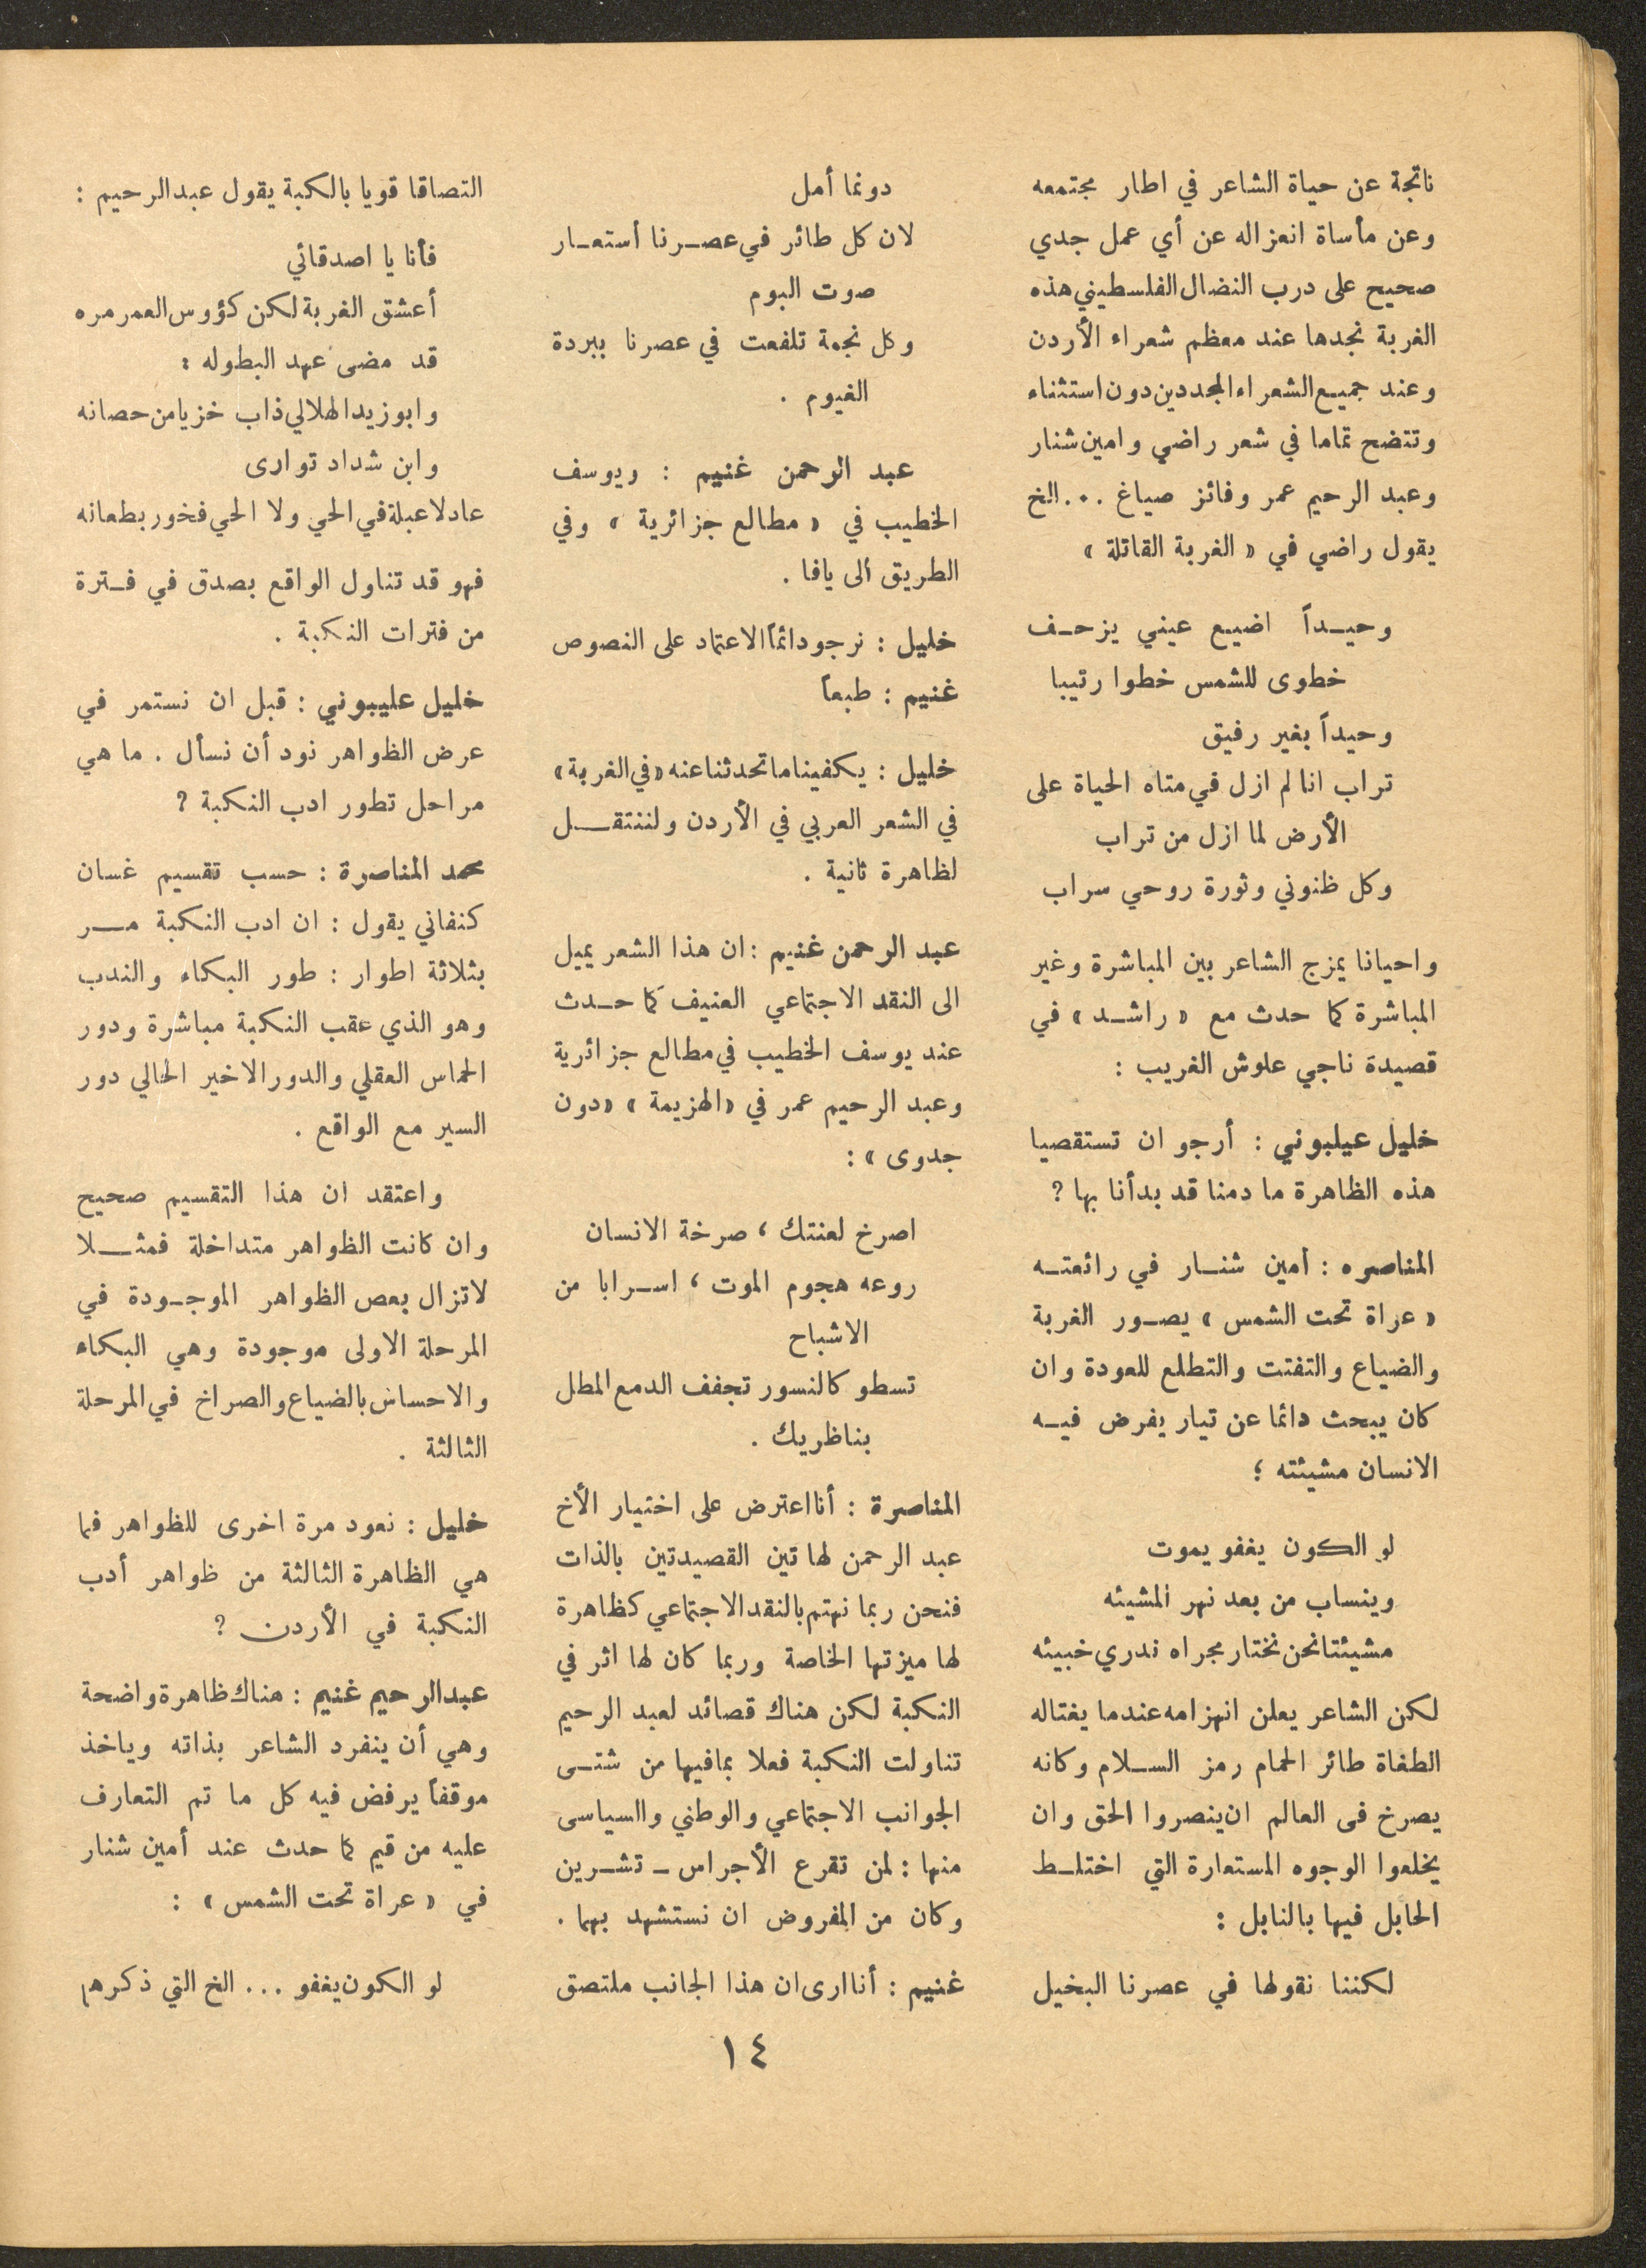 ناتجة عن حياة الشاعر في اطار مجتمعه
وعن مأساة انعزاله عن أي عمل جدي
صحيح على درب النضال الفلسطيني هذه
الغربة نجدها عند معظم شعراء الأردن
وعند جميع الشعراء المجددين دون استثناء
وتتضح تماما في شعر راضي وامين شنار
وعبد الرحيم عمر وفائز صياغ ... الخ
يقول راضي في « الغربة القاتلة »
وحيداً اضيع عيني يزحف
خطوى للشمس خطوا رتيبا
وحيداً بغير رفيق
تراب انا لم ازل في متاه الحياة على
الأرض لما ازل من تراب
وكل ظنوني وثورة روحي سراب
واحيانا يمزج الشاعر بين المباشرة وغير
المباشرة كما حدث مع « راشد » في
قصيدة ناجي علوش الغريب :
خليل عيلبوني : أرجو ان تستقصيا
هذه الظاهرة ما دمنا قد بدأنا بها ؟
المناصره : امين شنار في رائعته
« عراة تحت الشمس » يصور الغربة
والضياع والتفتت والتطلع للعودة وان
كان يبحث دائما عن تيار يفرض فيه
الانسان مشيئته ؛
لو الكون يغفو يموت
وينساب من بعد نهر المشيئه
مشيئتنا نحن نختار مجراه ندري خبيئه
لكن الشاعر يعلن انهزامه عندما يغتاله
الطغاة طائر الحمام رمز السلام وكانه
يصرخ فى العالم ان ينصروا الحق وان
يخلعوا الوجوه المستعارة التي اختلط
الحابل فيها بالنابل :
لكننا نقولها في عصرنا البخيل
دونما أمل
لان كل طائر في عصرنا أستعار
صوت البوم
وكل نجمة تلفعت في عصرنا ببردة
الغيوم .
عبد الرحمن غنيم : ويوسف
الخطيب في « مطالع جزائرية » وفي
الطريق الى يافا .
خليل : نرجو دائماً الاعتماد على النصوص
غنيم : طبعاً
خليل : يكفينا ما تحدثنا عنه « في الغربة »
في الشعر العربي في الأردن ولننتقل
لظاهرة ثانية .
عبد الرحمن غنيم : ان هذا الشعر يميل
الى النقد الاجتماعي العنيف كما حدث
عند يوسف الخطيب في مطالع جزائرية
وعبد الرحيم عمر في « الهزيمة » « دون
جدوى » :
اصرخ لعنتك ، صرخة الانسان
روعه هجوم الموت ، اسرابا من
الاشباح
تسطو كالنسور تجفف الدمع المطل
بناظريك .
المناصرة : أنا اعترض على اختيار الأخ
عبد الرحمن لهاتين القصيدتين بالذات
فنحن ربما نهتم بالنقد الاجتماعي كظاهرة
لها ميزتها الخاصة وربما كان لها اثر في
النكبة لكن هناك قصائد لعبد الرحيم
تناولت النكبة فعلا بمافيها من شتى
الجوانب الاجتماعي والوطني واالسياسى
منها : لمن تقرع الأجراس ـ تشرين
وكان من المفروض ان نستشهد بهما .
غنيم : أنا ارى ان هذا الجانب ملتصق
التصاقا قويا بالكبة يقول عبد الرحيم :
فأنا يا اصدقائي
أعشق الغربة لكن كؤوس العمر مره
قد مضى عهد البطوله :
وابو زيد الهلالي ذاب خزيا من حصانه
وابن شداد توارى
عاد لا عبلة في الحي ولا الحي فخور بطعانه
فهو قد تناول الواقع بصدق في فترة
من فترات النكبة .
خليل عليبوني : قبل ان نستمر في
عرض الظواهر نود أن نسأل . ما هي
مراحل تطور ادب النكبة ؟
محمد المناصرة : حسب تقسيم غسان
كنفاني يقول : ان ادب النكبة مر
بثلاثة اطوار : طور البكاء والندب
وهو الذي عقب النكبة مباشرة ودور
الحماس العقلي والدور الاخير الحالي دور
السير مع الواقع .
واعتقد ان هذا التقسيم صحيح
وان كانت الظواهر متداخلة فمثلا
لاتزال بعص الظواهر الموجودة في
المرحلة الاولى موجودة وهي البكاء
والاحساس بالضياع والصراخ في المرحلة
الثالثة .
خليل : نعود مرة اخرى للظواهر فما
هي الظاهرة الثالثة من ظواهر أدب
النكبة في الأردن ؟
عبد الرحيم غنيم : هناك ظاهرة واضحة
وهي أن ينفرد الشاعر بذاته وياخذ
موقفاً يرفض فيه كل ما تم التعارف
عليه من قيم كما حدث عند أمين شنار
في « عراة تحت الشمس » :
لو الكون يغفو ... الخ التي ذكرهم
١٤